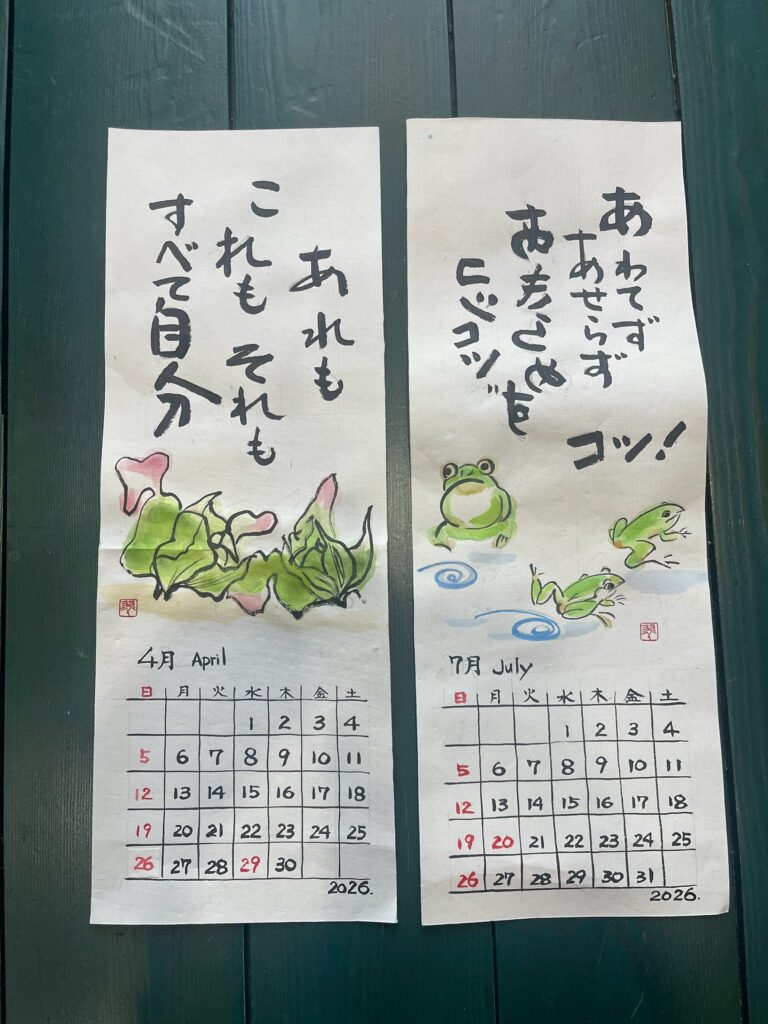 あれも
これも それも
すべて自分
4月 April
日 月 火 水 木 金 土
1 2 3 4
5 6 7 8 9 10 11
12 13 14 15 16 17 18
19 20 21 22 23 24 25
26 27 28 29 30
2026.
あわてず
あせらず
あきらめず
コツコツ
コツ!
7月 July
日 月 火 水 木 金 土
1 2 3 4
5 6 7 8 9 10 11
12 13 14 15 16 17 18
19 20 21 22 23 24 25
26 27 28 29 30 31
2026.